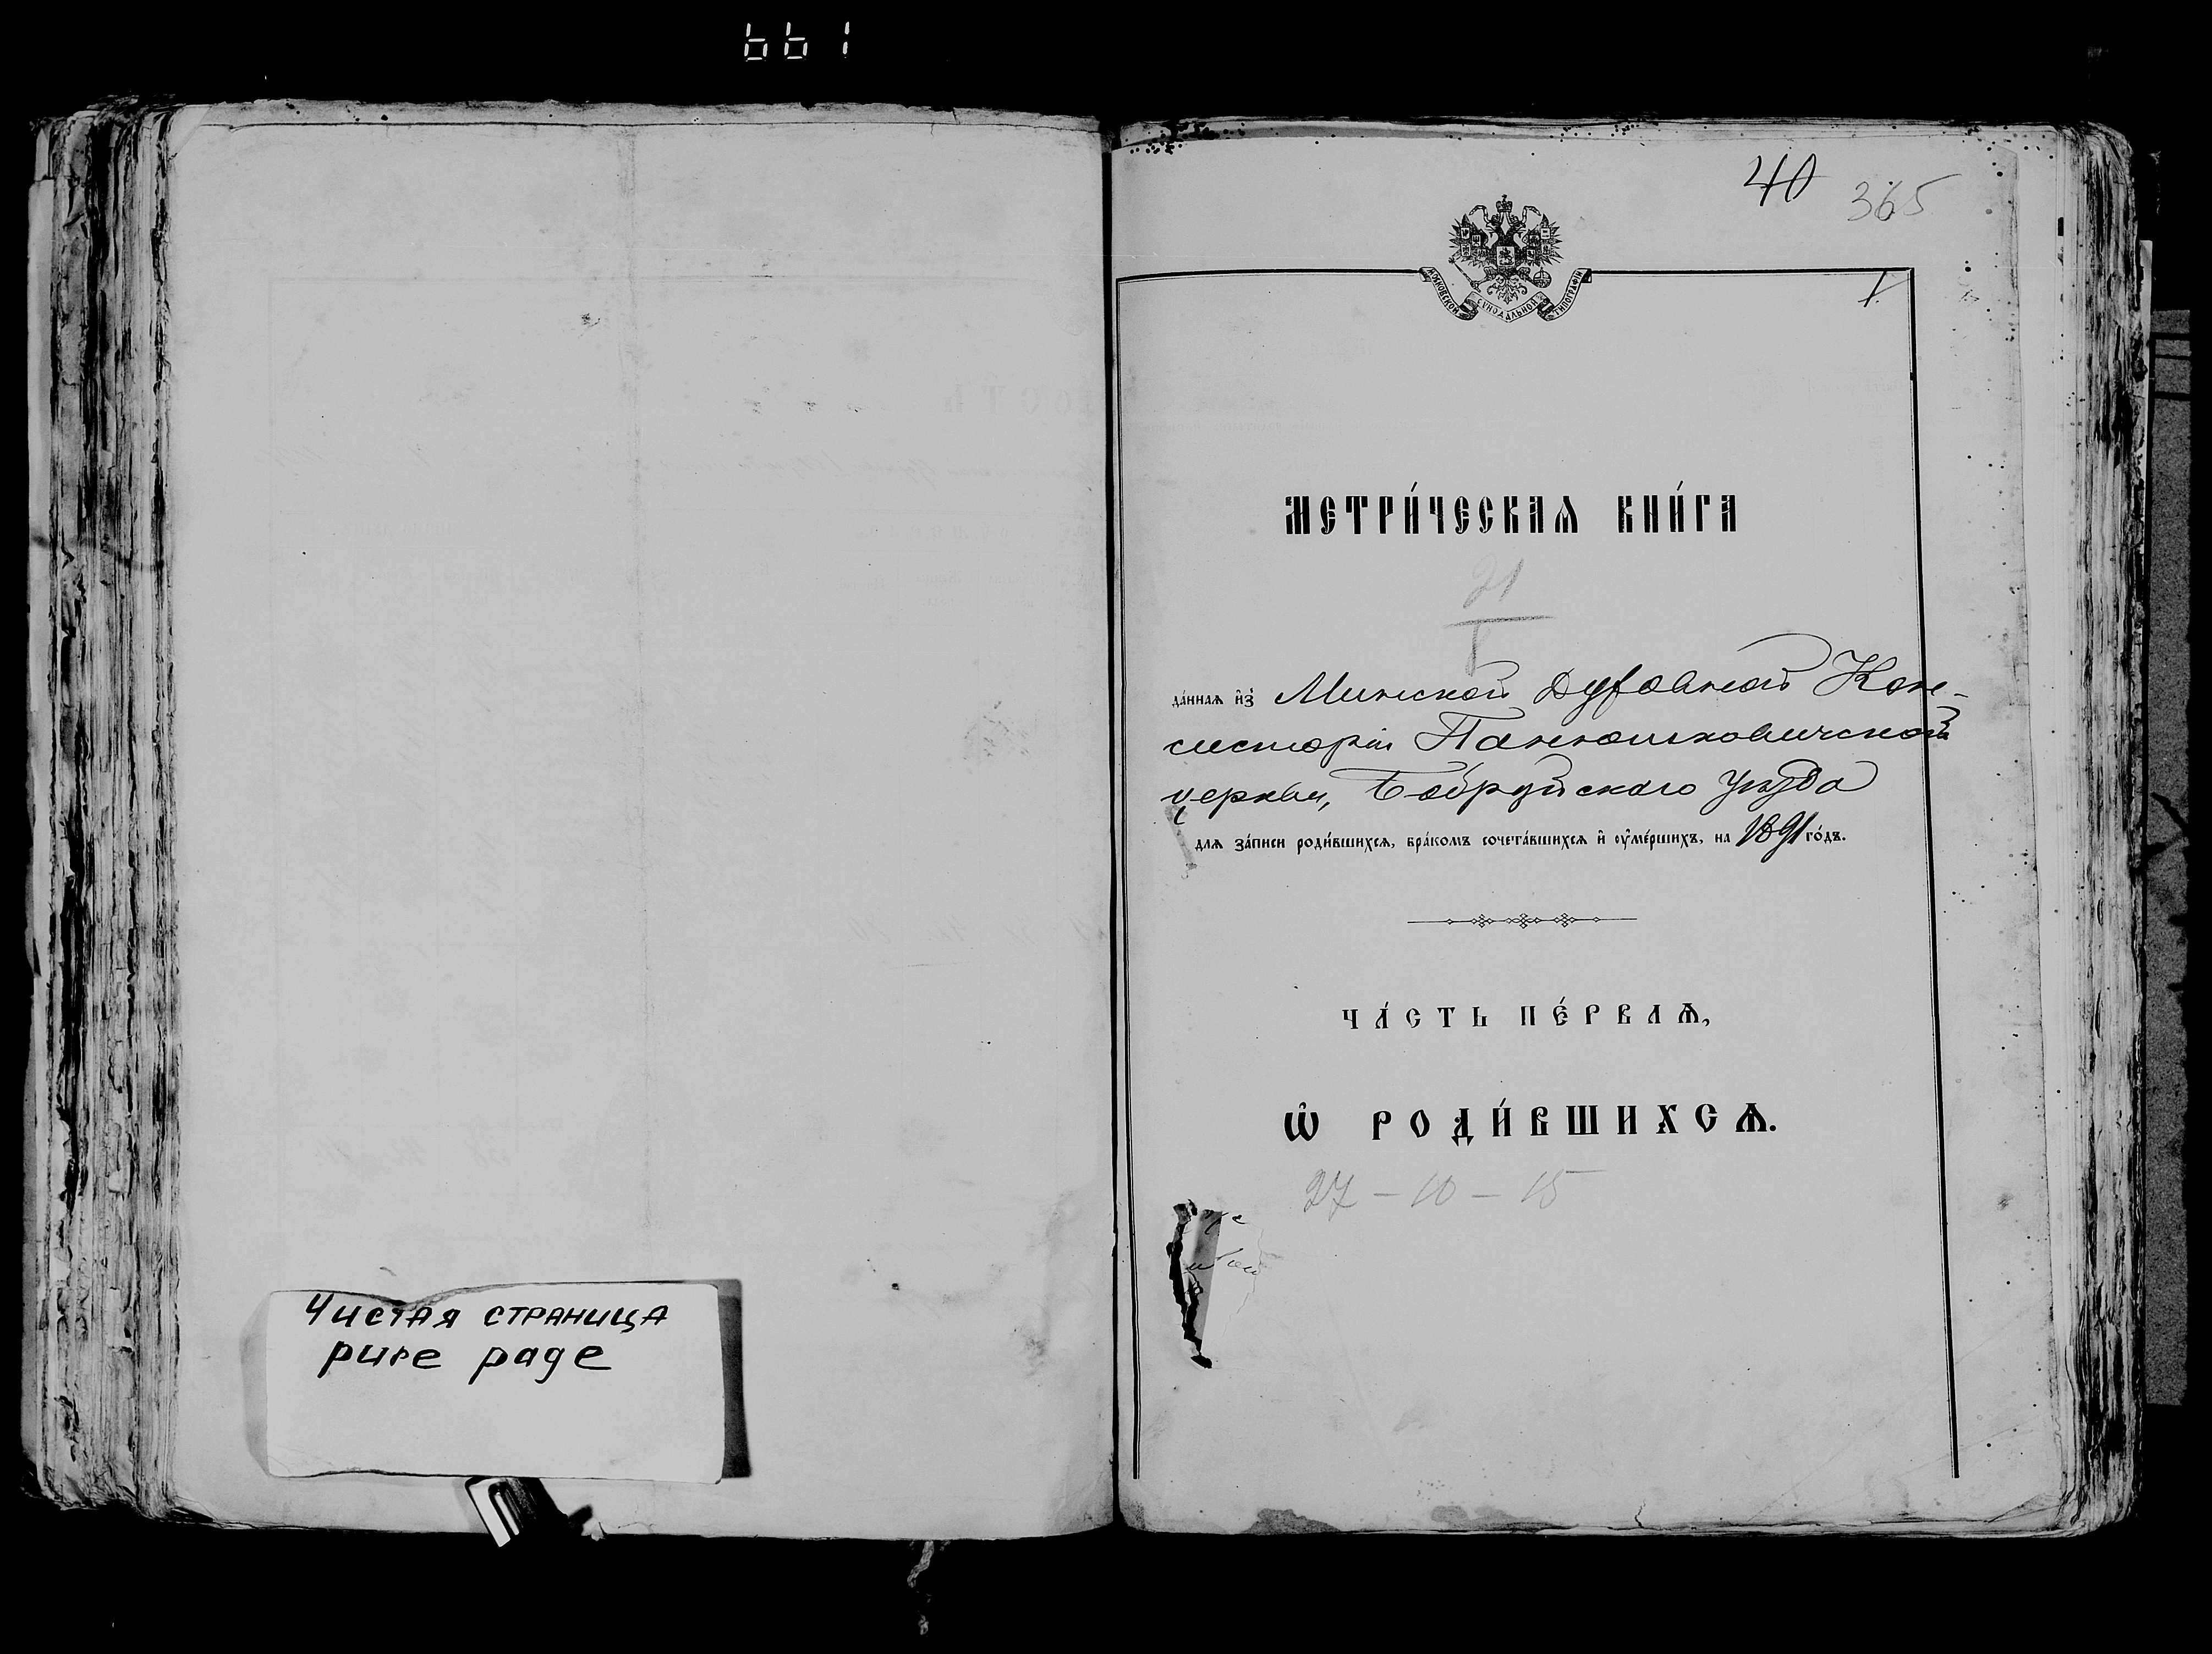 661
Чистая страница
pure page
40 365
1.
МОСКОВСКОЙ СѴНОДАЛЬНОЙ ТИПОГРАФІИ
МЕТРИ́ЧЕСКАѦ КНИ́ГА
21
да́ннаѧ и҆з̾ Минской Духовной Кон-
систоріи Панюшковичской
церкви, Бобруйскаго уѣзда
длѧ за́писи роди́вшихсѧ, бра́комъ сочета́вшихсѧ и҆ ᲂу҆ме́ршихъ, на 1891 го́дъ.
ЧА́СТЬ ПЕ́РВАѦ,
Ѡ҆ РОДИ́ВШИХСѦ.
27 - 10 - 15